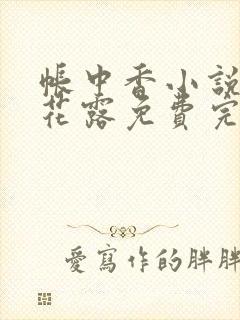 帳中香小說
花露免費完
愛寫作的胖胖